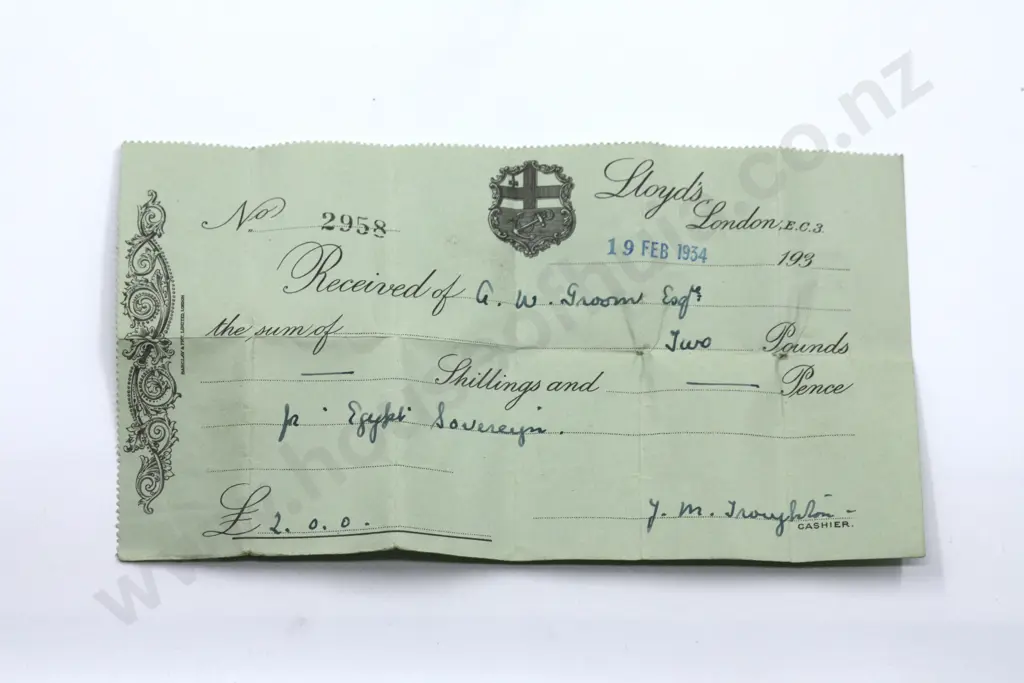 Lloyd's
London, E.C.3.
No. 2958
19 FEB 1934 193
Received of A. W. Groom Esqre
the sum of Two Pounds
— Shillings and — Pence
pr Egypt' Sovereign.
£ 2. 0. 0.
J. M. Troughton
CASHIER.
www.houseofhuia.co.nz